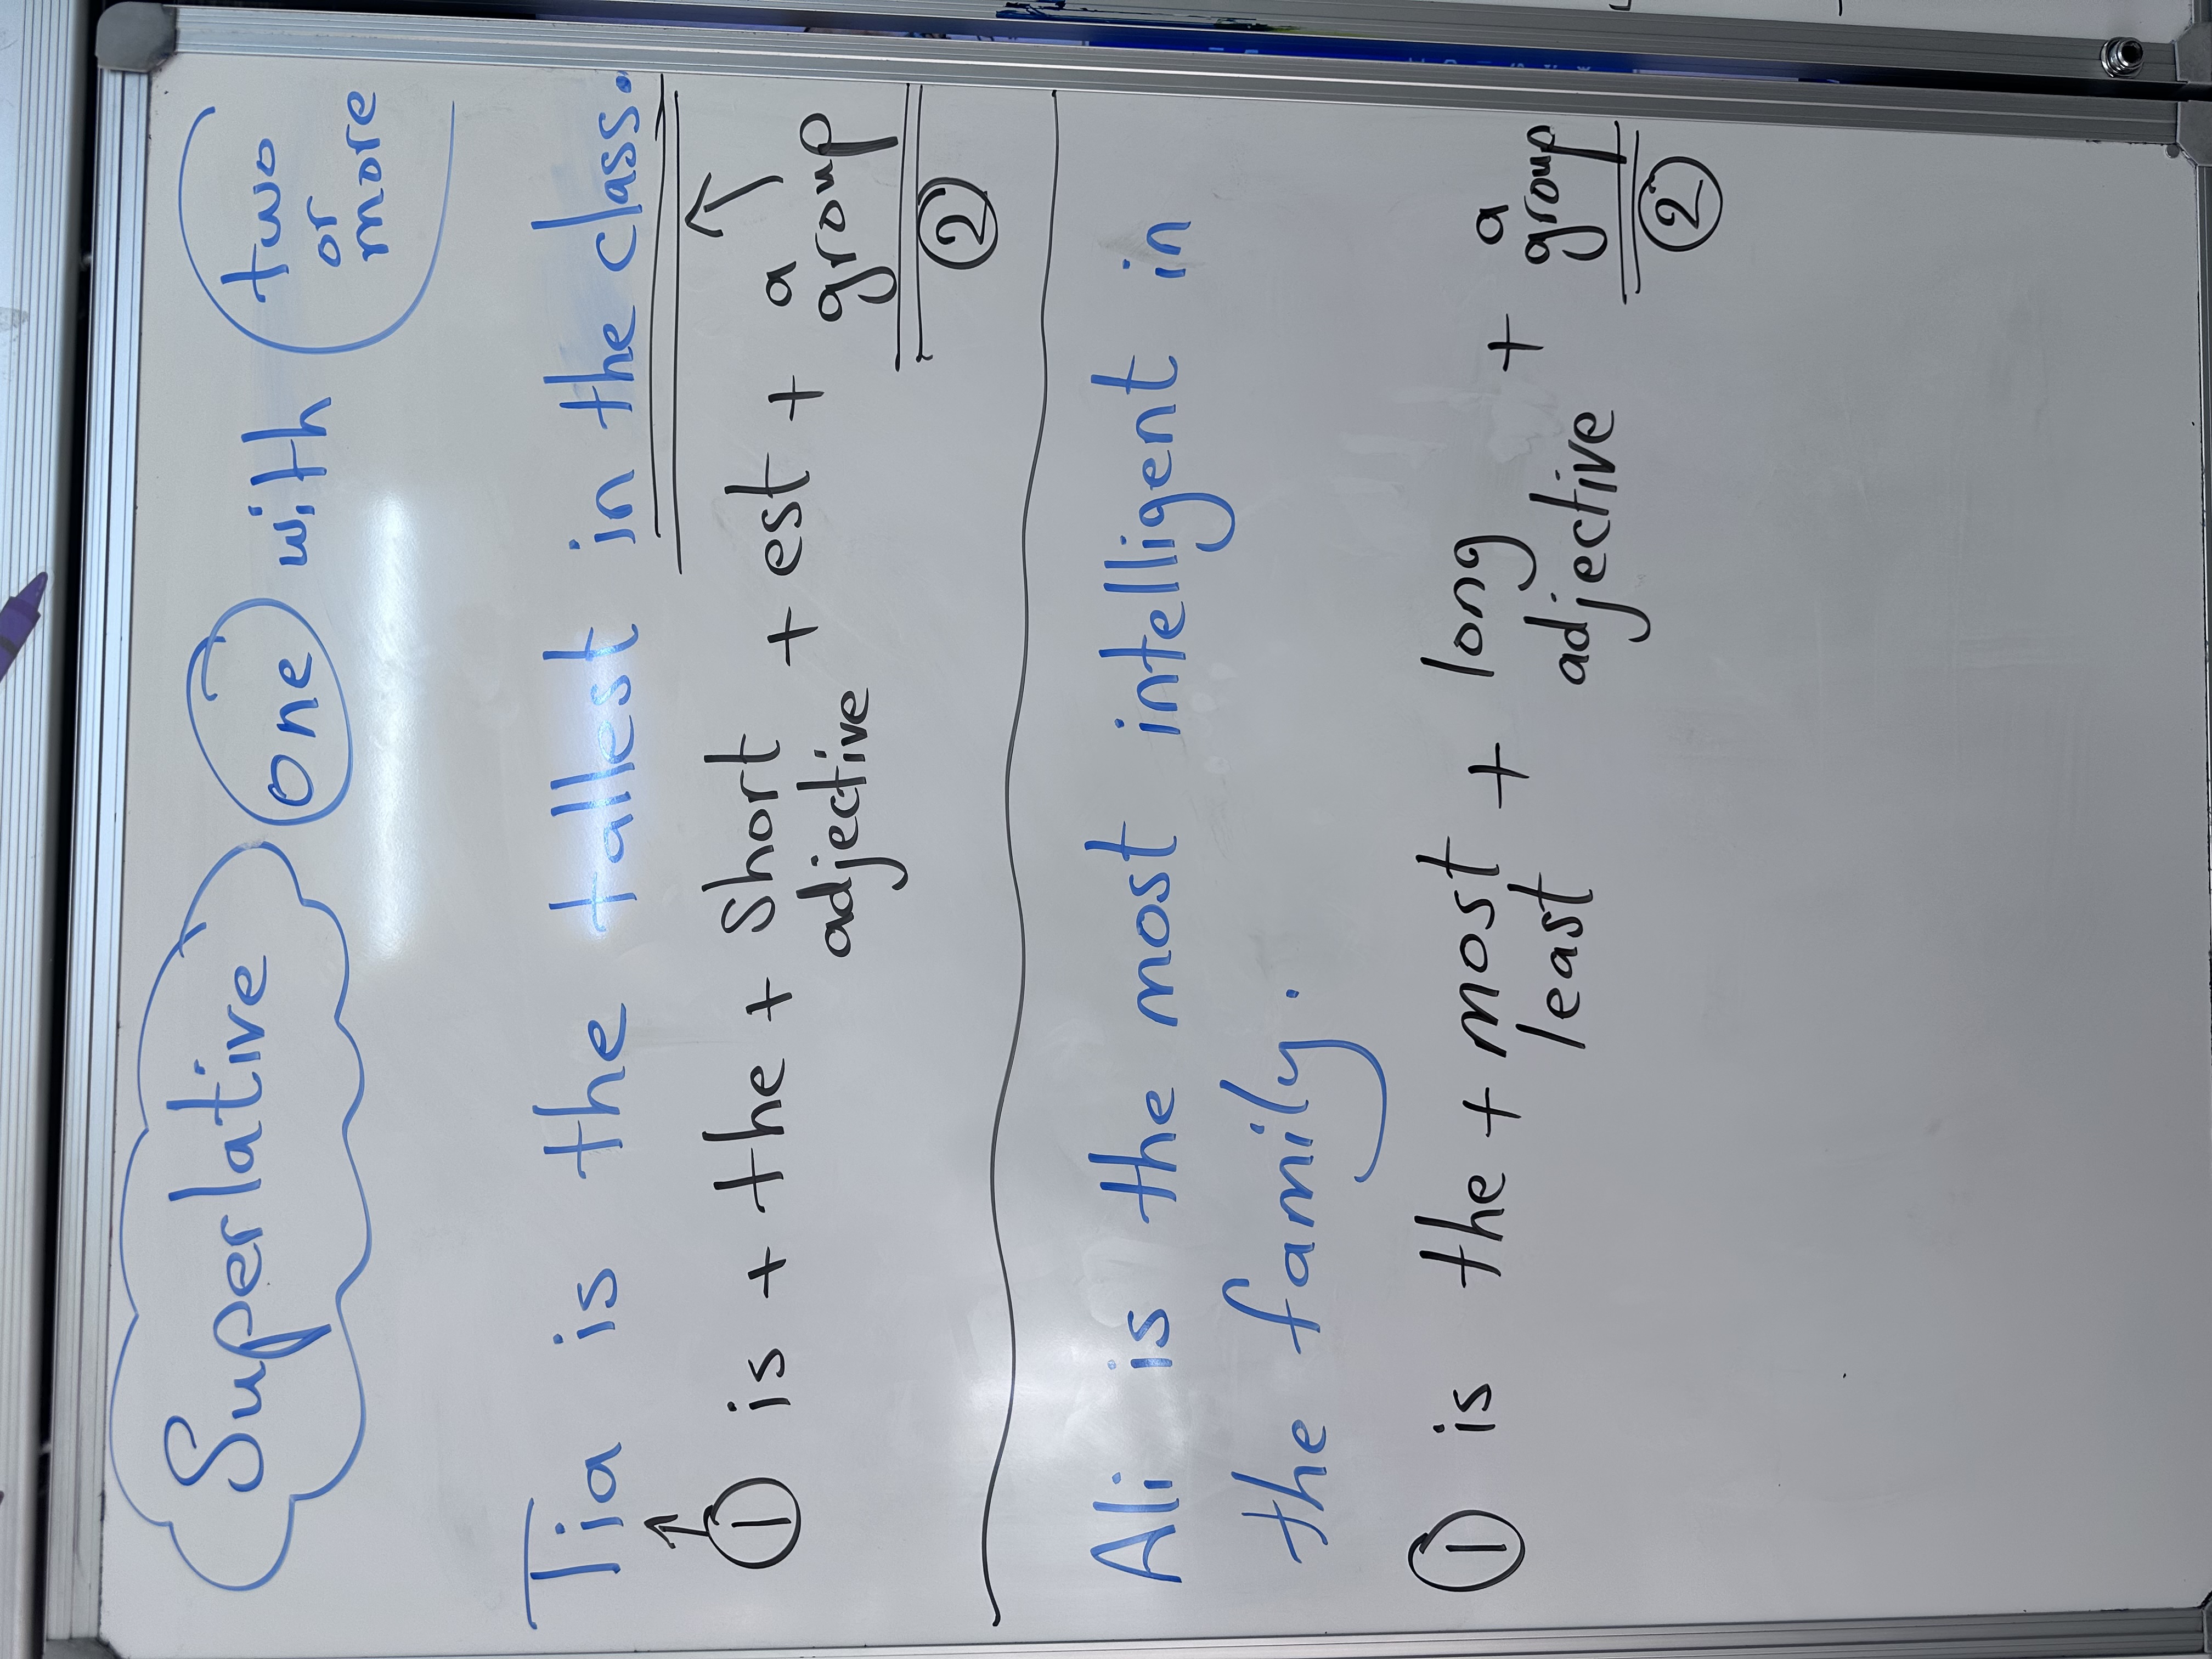 Superlative one with two
or
more
Tia is the tallest in the class.
① is + the + Short + est + a
adjective group
②
Ali is the most intelligent in
the family.
① is the + most + long + a
least adjective group
②